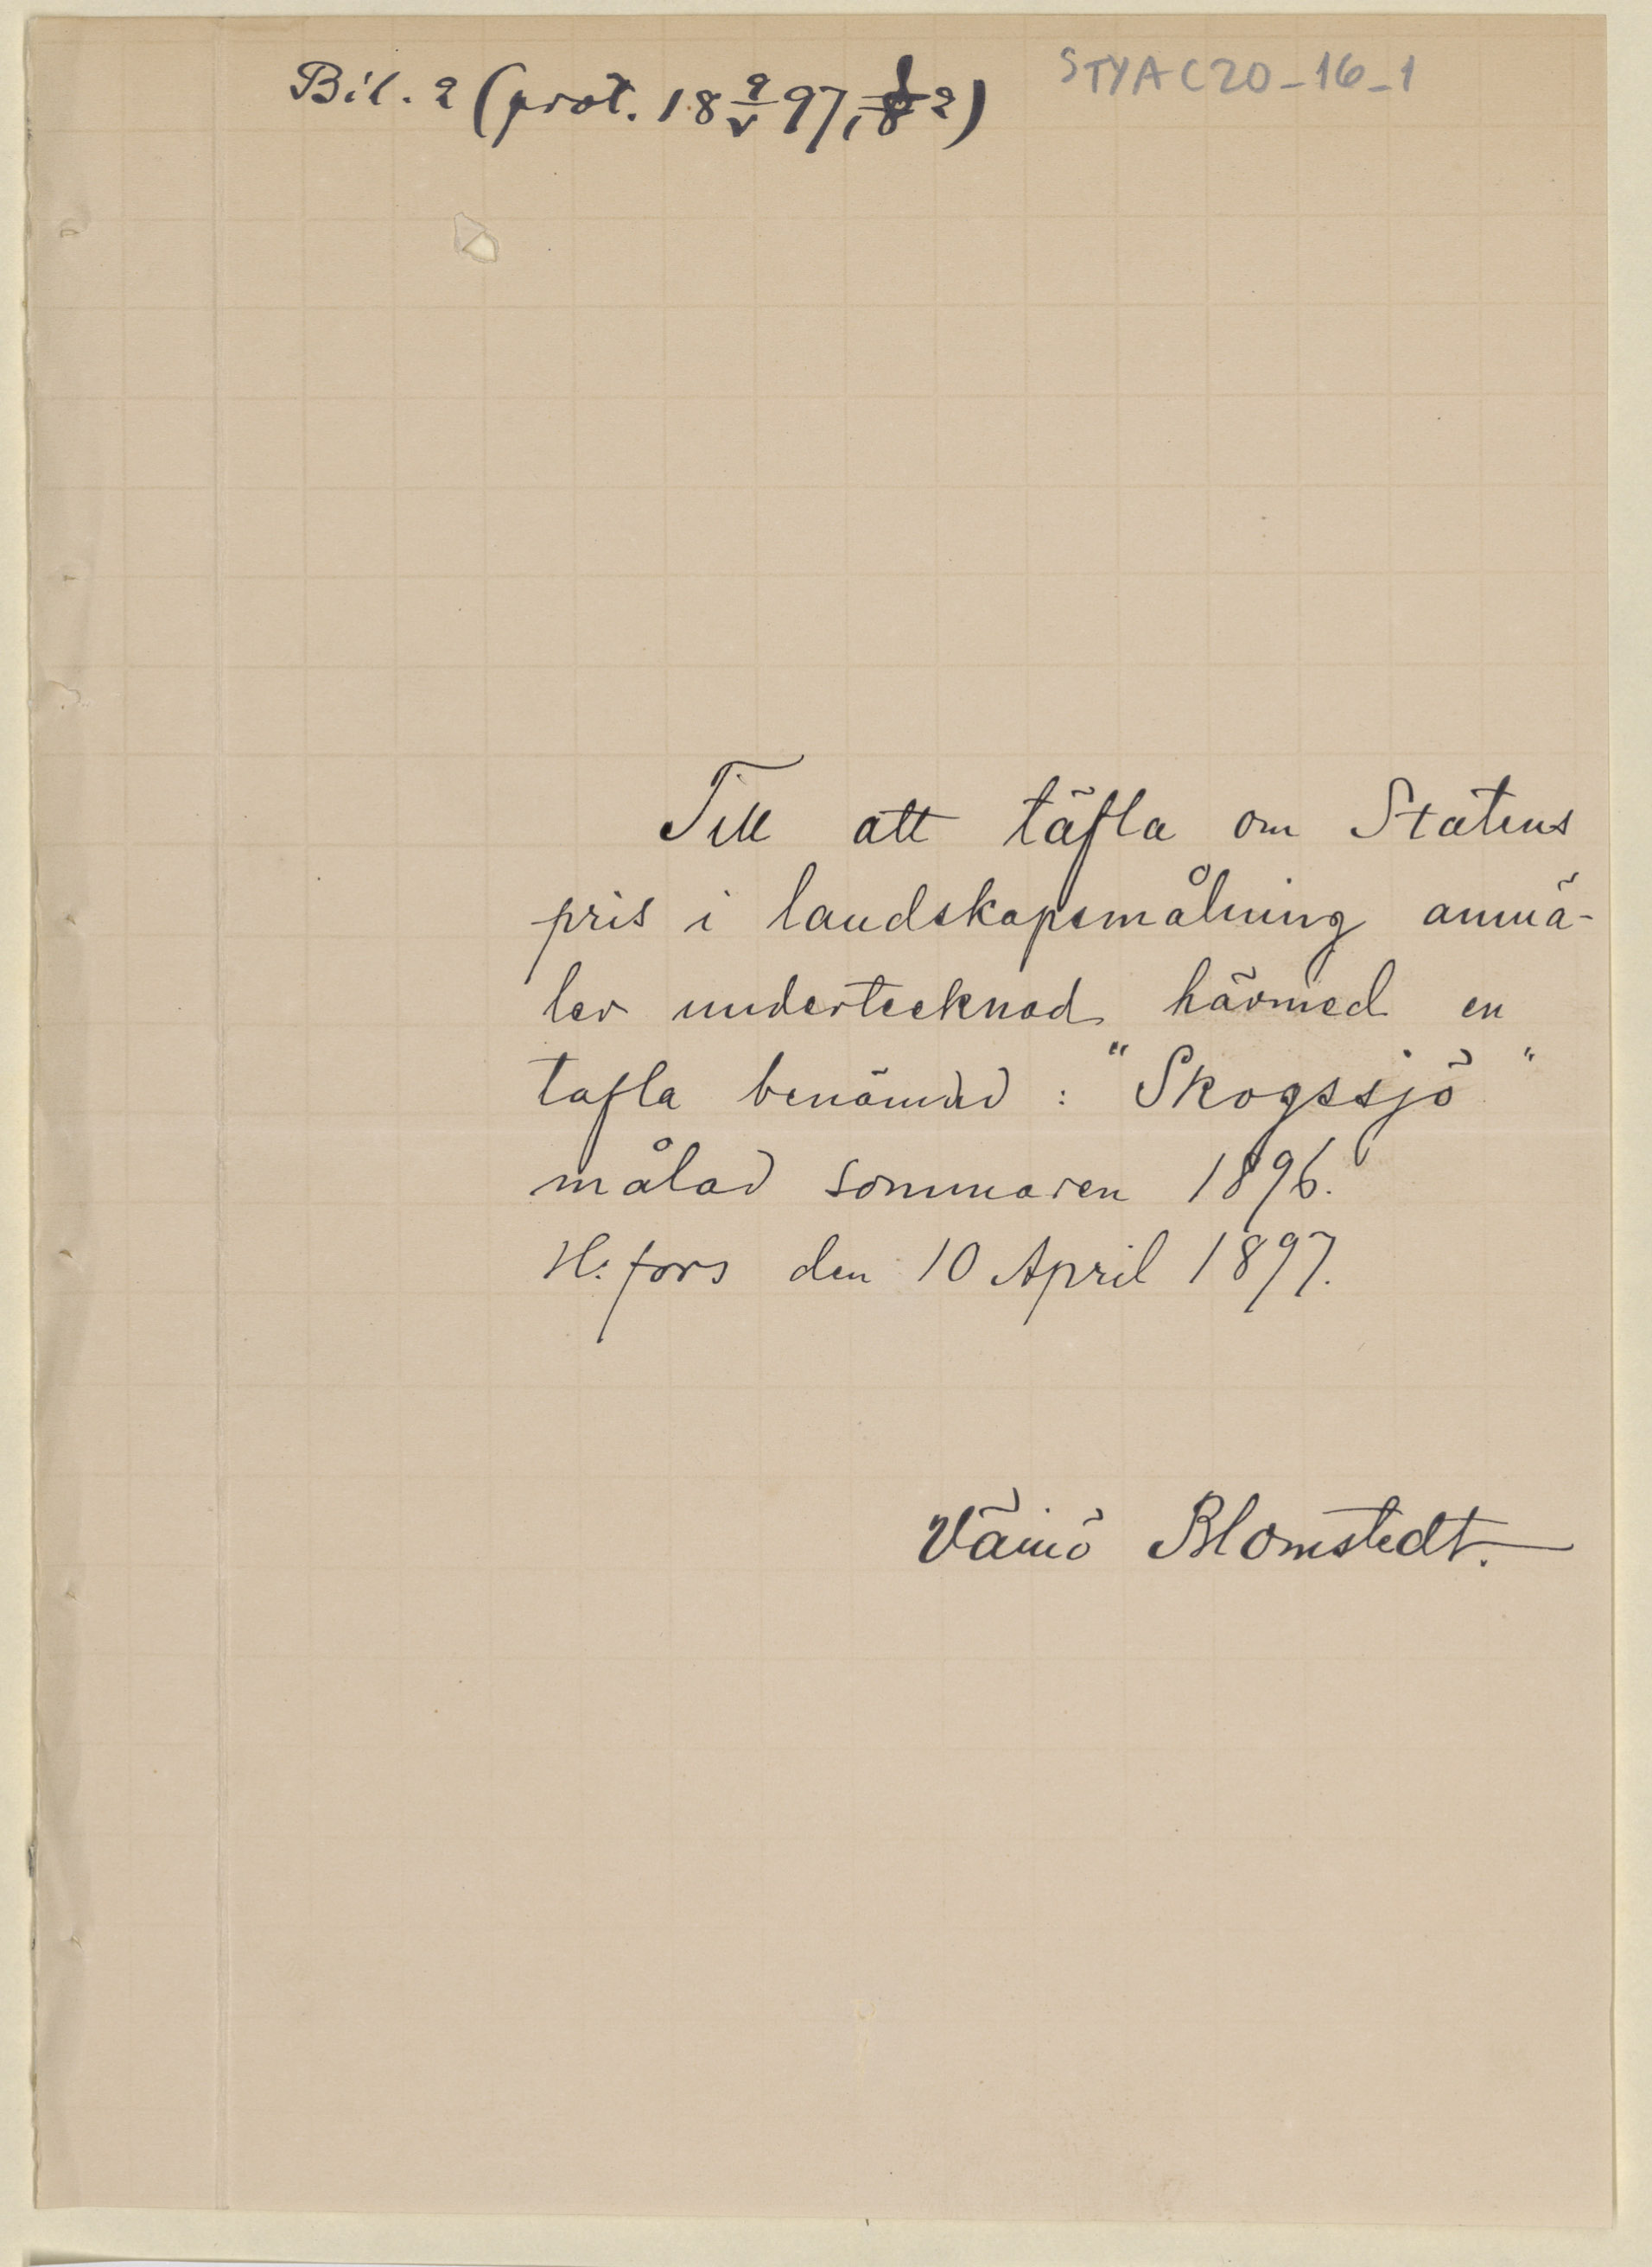 Bil. 2 (prot. 18 2/V 97, 2)
STYA C20-16-1
Till att täfla om Statens
pris i landskapsmålning anmä-
ler undertecknad härmed en
tafla benämnd : "Skogssjö"
målad sommaren 1896.
H:fors den 10 April 1897.
Väinö Blomstedt.